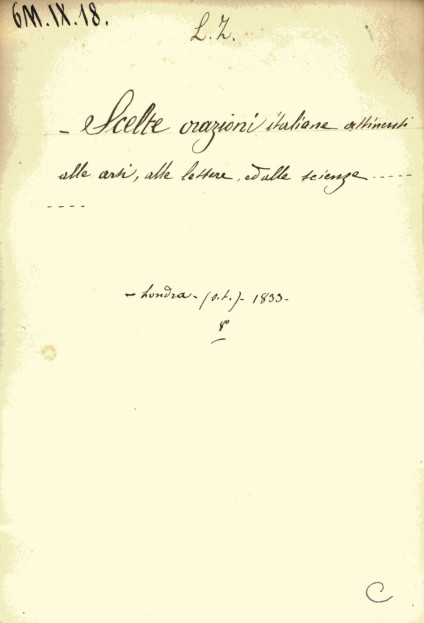 6M.IX.18.
L. Z.
- Scelte orazioni italiane attinenti
alle arti, alle lettere, ed alle scienze-----
----
- Londra - (s.t.) - 1833 -
8°
C